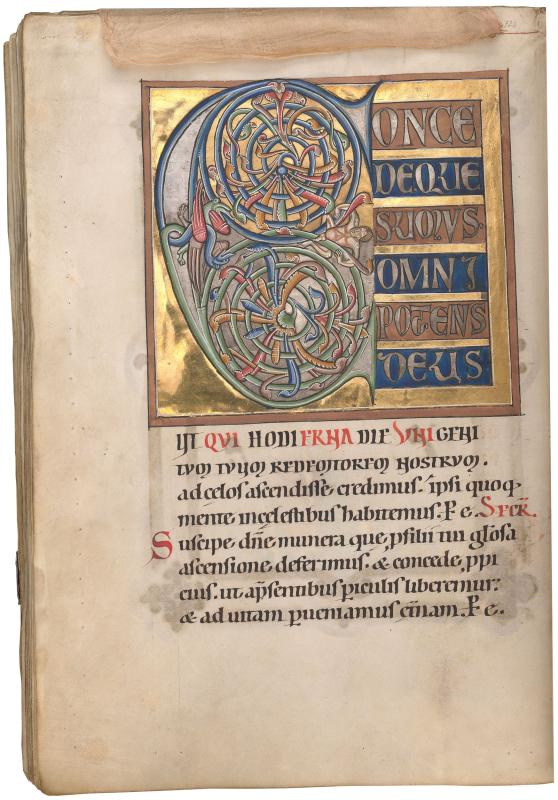 CONCE
DEQUE
SUMUS.
OMNI
POTENS
DEUS
UT QUI HODIERNA DIE UNIGENI
TUM TUUM REDEMTOREM NOSTRUM.
ad celos ascendisse credimus. ipsi quoq;
mente in celestibus habitemus. P̄ e. SECR̄.
Suscipe dn̄e munera que p̱ filii tui gl̄osa
ascensione deferimus. & concede p̱pi
cius. ut a p̄sentibus p̱iculis liberemur:
& ad uitam p̱ueniamus et̄nam. P̄ e.